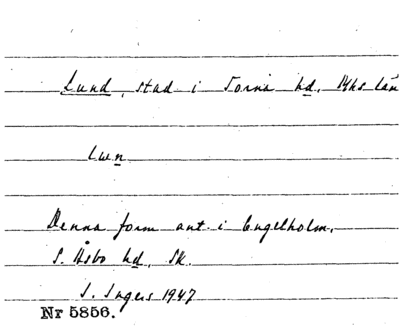 Lund, stad i Torna hd. Mhs. län
Lwn
Denna form ant. i Engelholm,
S. Åsbo hd, Sk.
I. Ingers 1947
Nr 5856.